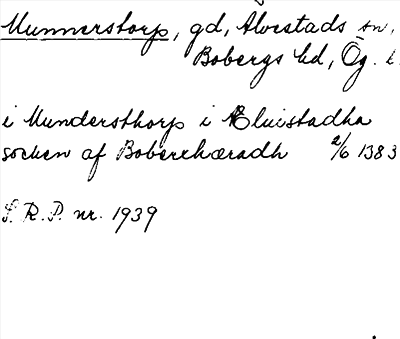 Munnerstorp, gd, Alvestads sn,
Bobergs hd, Ög. l.
i Mundersthorp i Eluistadha
socken af Boberxhæradh 2/6 1383
S. R. P. nr. 1939